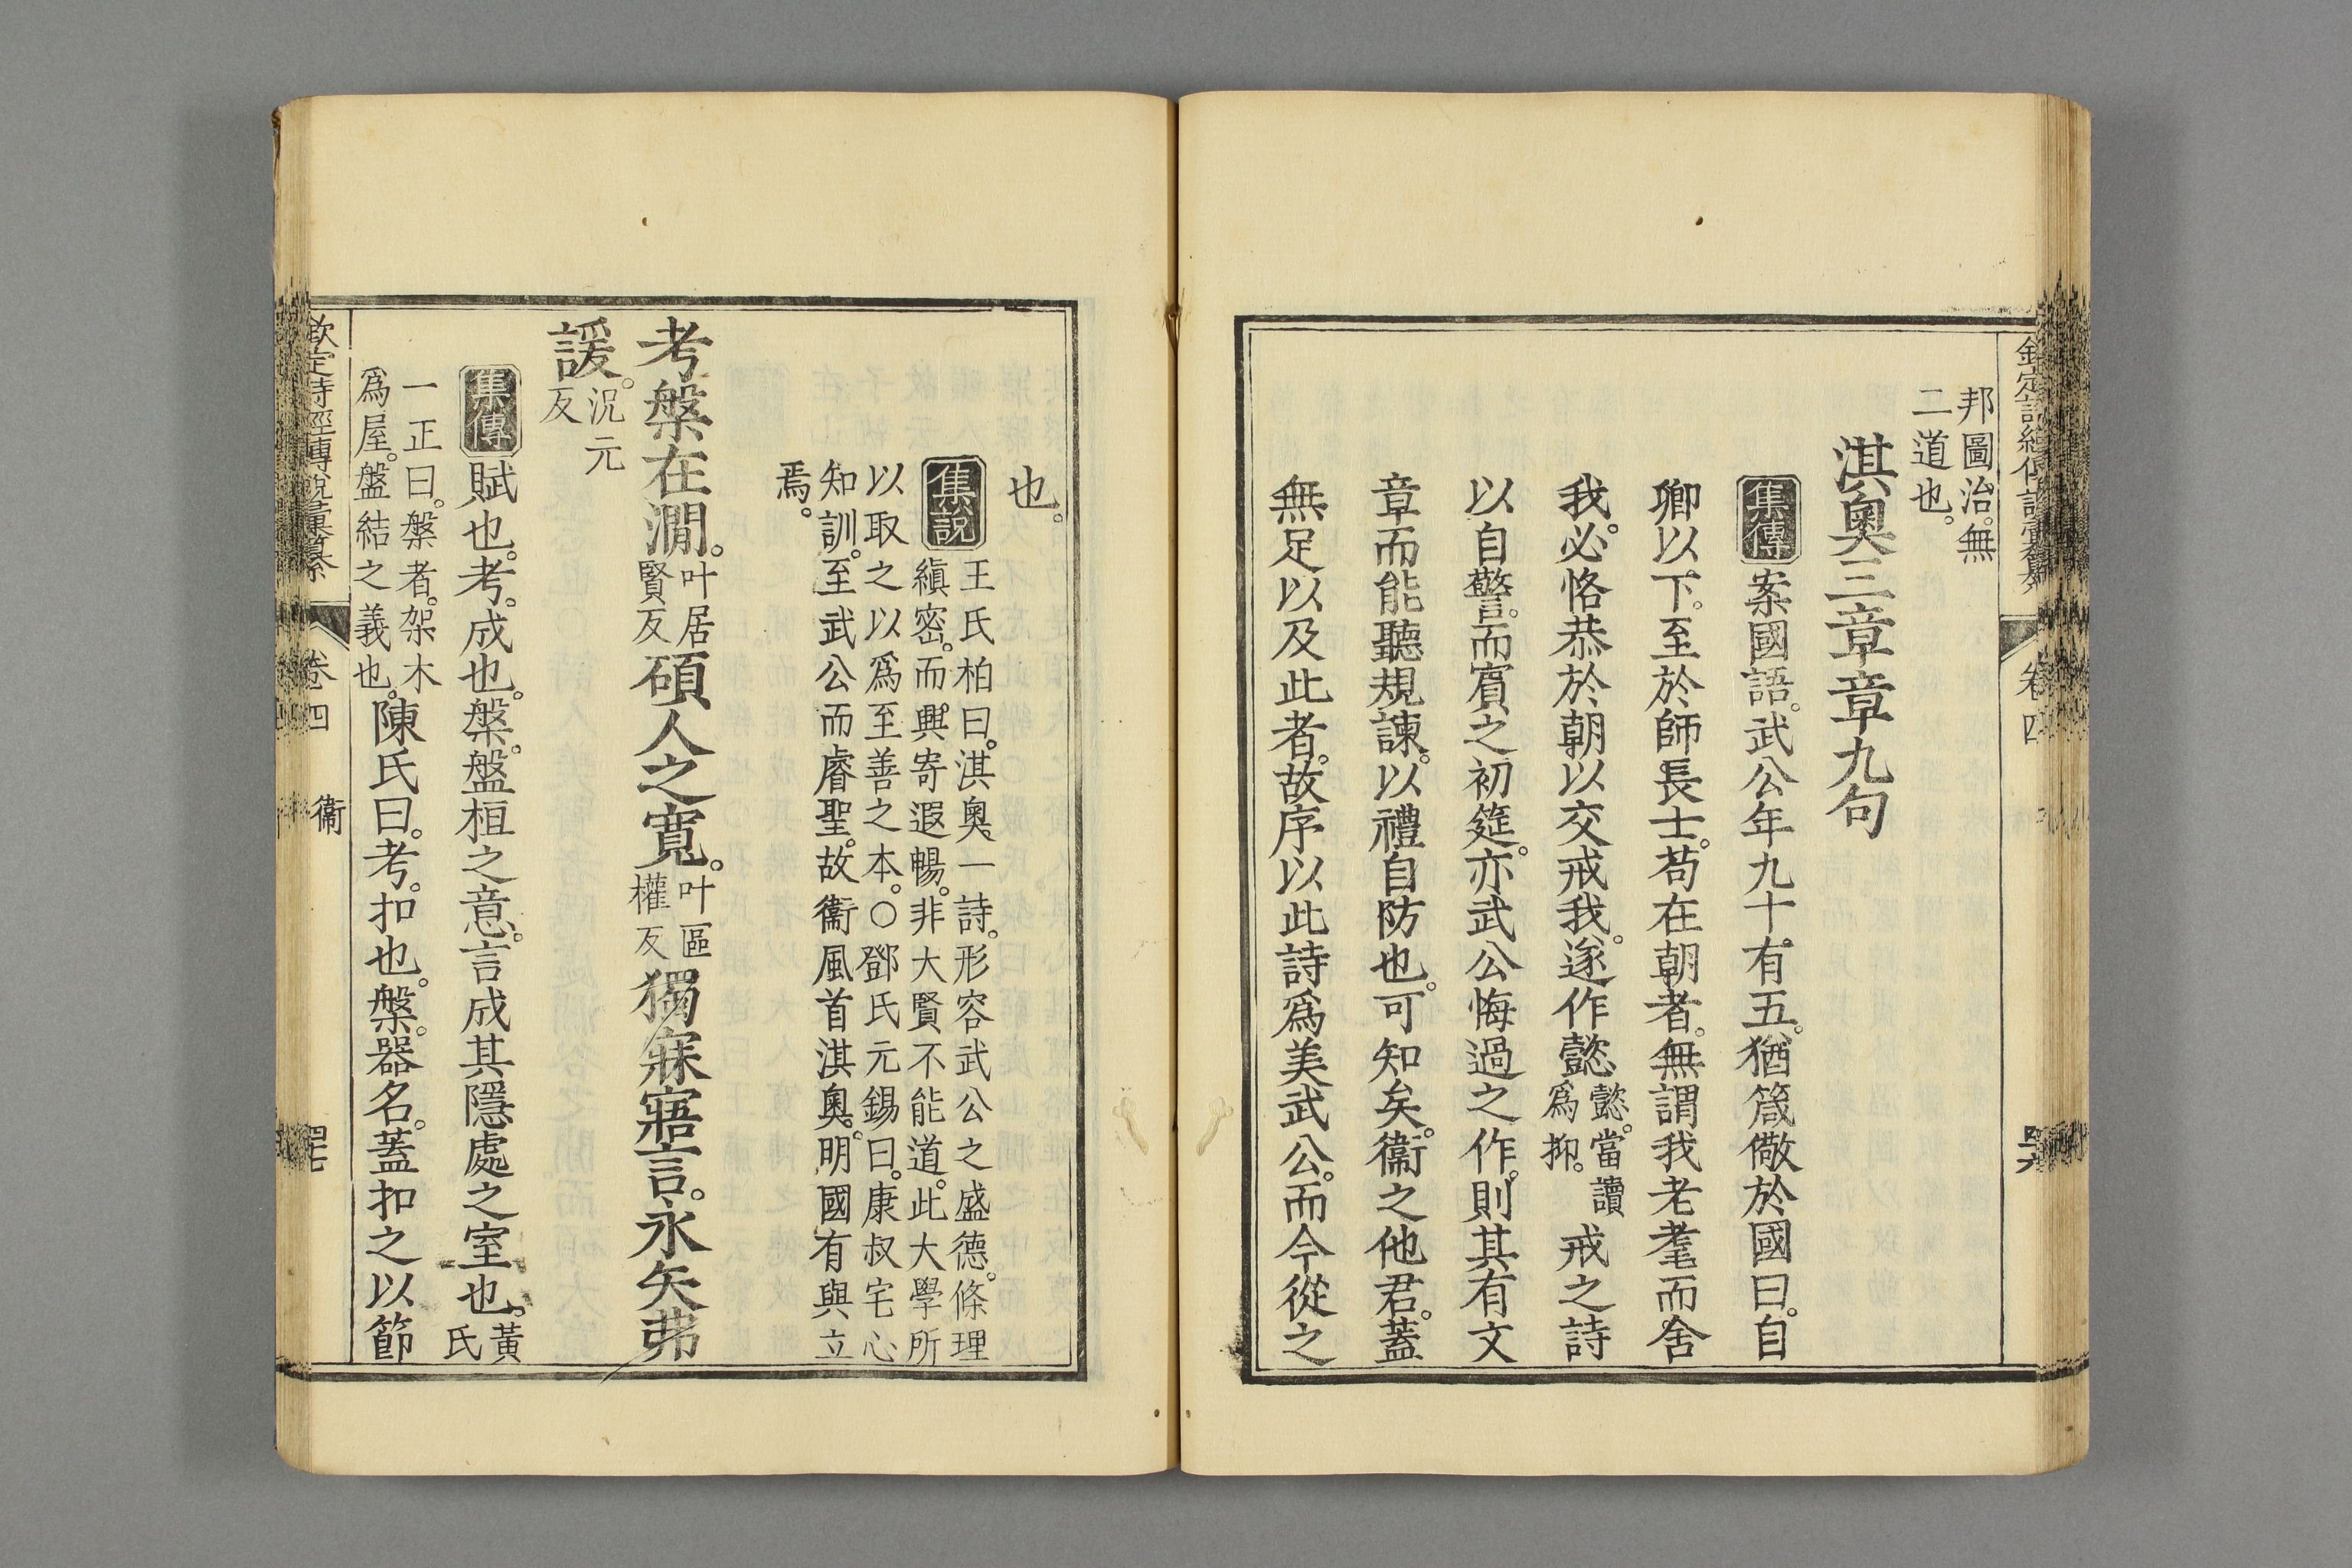 邦圖治。無
二道也。
淇奧三章章九句
集傳 案國語。武公年九十有五。猶箴儆於國曰。自
卿以下。至於師長士。苟在朝者。無謂我老耄而舍
我。必恪恭於朝以交戒我。遂作懿
懿。當讀
爲抑。
戒之詩
以自警。而賔之初筵。亦武公悔過之作。則其有文
章而能聽規諫。以禮自防也。可知矣。衞之他君。蓋
無足以及此者。故序以此詩爲美武公。而今從之
也。
集說 王氏柏曰。淇奧一詩。形容武公之盛德。條理
縝密。而興寄遐暢。非大賢不能道。此大學所
以取之以爲至善之本。○鄧氏元錫曰。康叔宅心
知訓。至武公而睿聖。故衞風首淇奧。明國有與立
焉。
考槃在澗。
叶居
賢反
碩人之寬。
叶區
權反
獨寐寤言。永矢弗
諼。
况元
反
集傳 賦也。考。成也。槃。盤桓之意。言成其隱處之室也。
黃氏
一正曰。槃者。架木
爲屋。盤結之義也。
陳氏曰。考。扣也。槃。器名。蓋扣之以節
欽定詩經傳說彙纂 卷四 衞